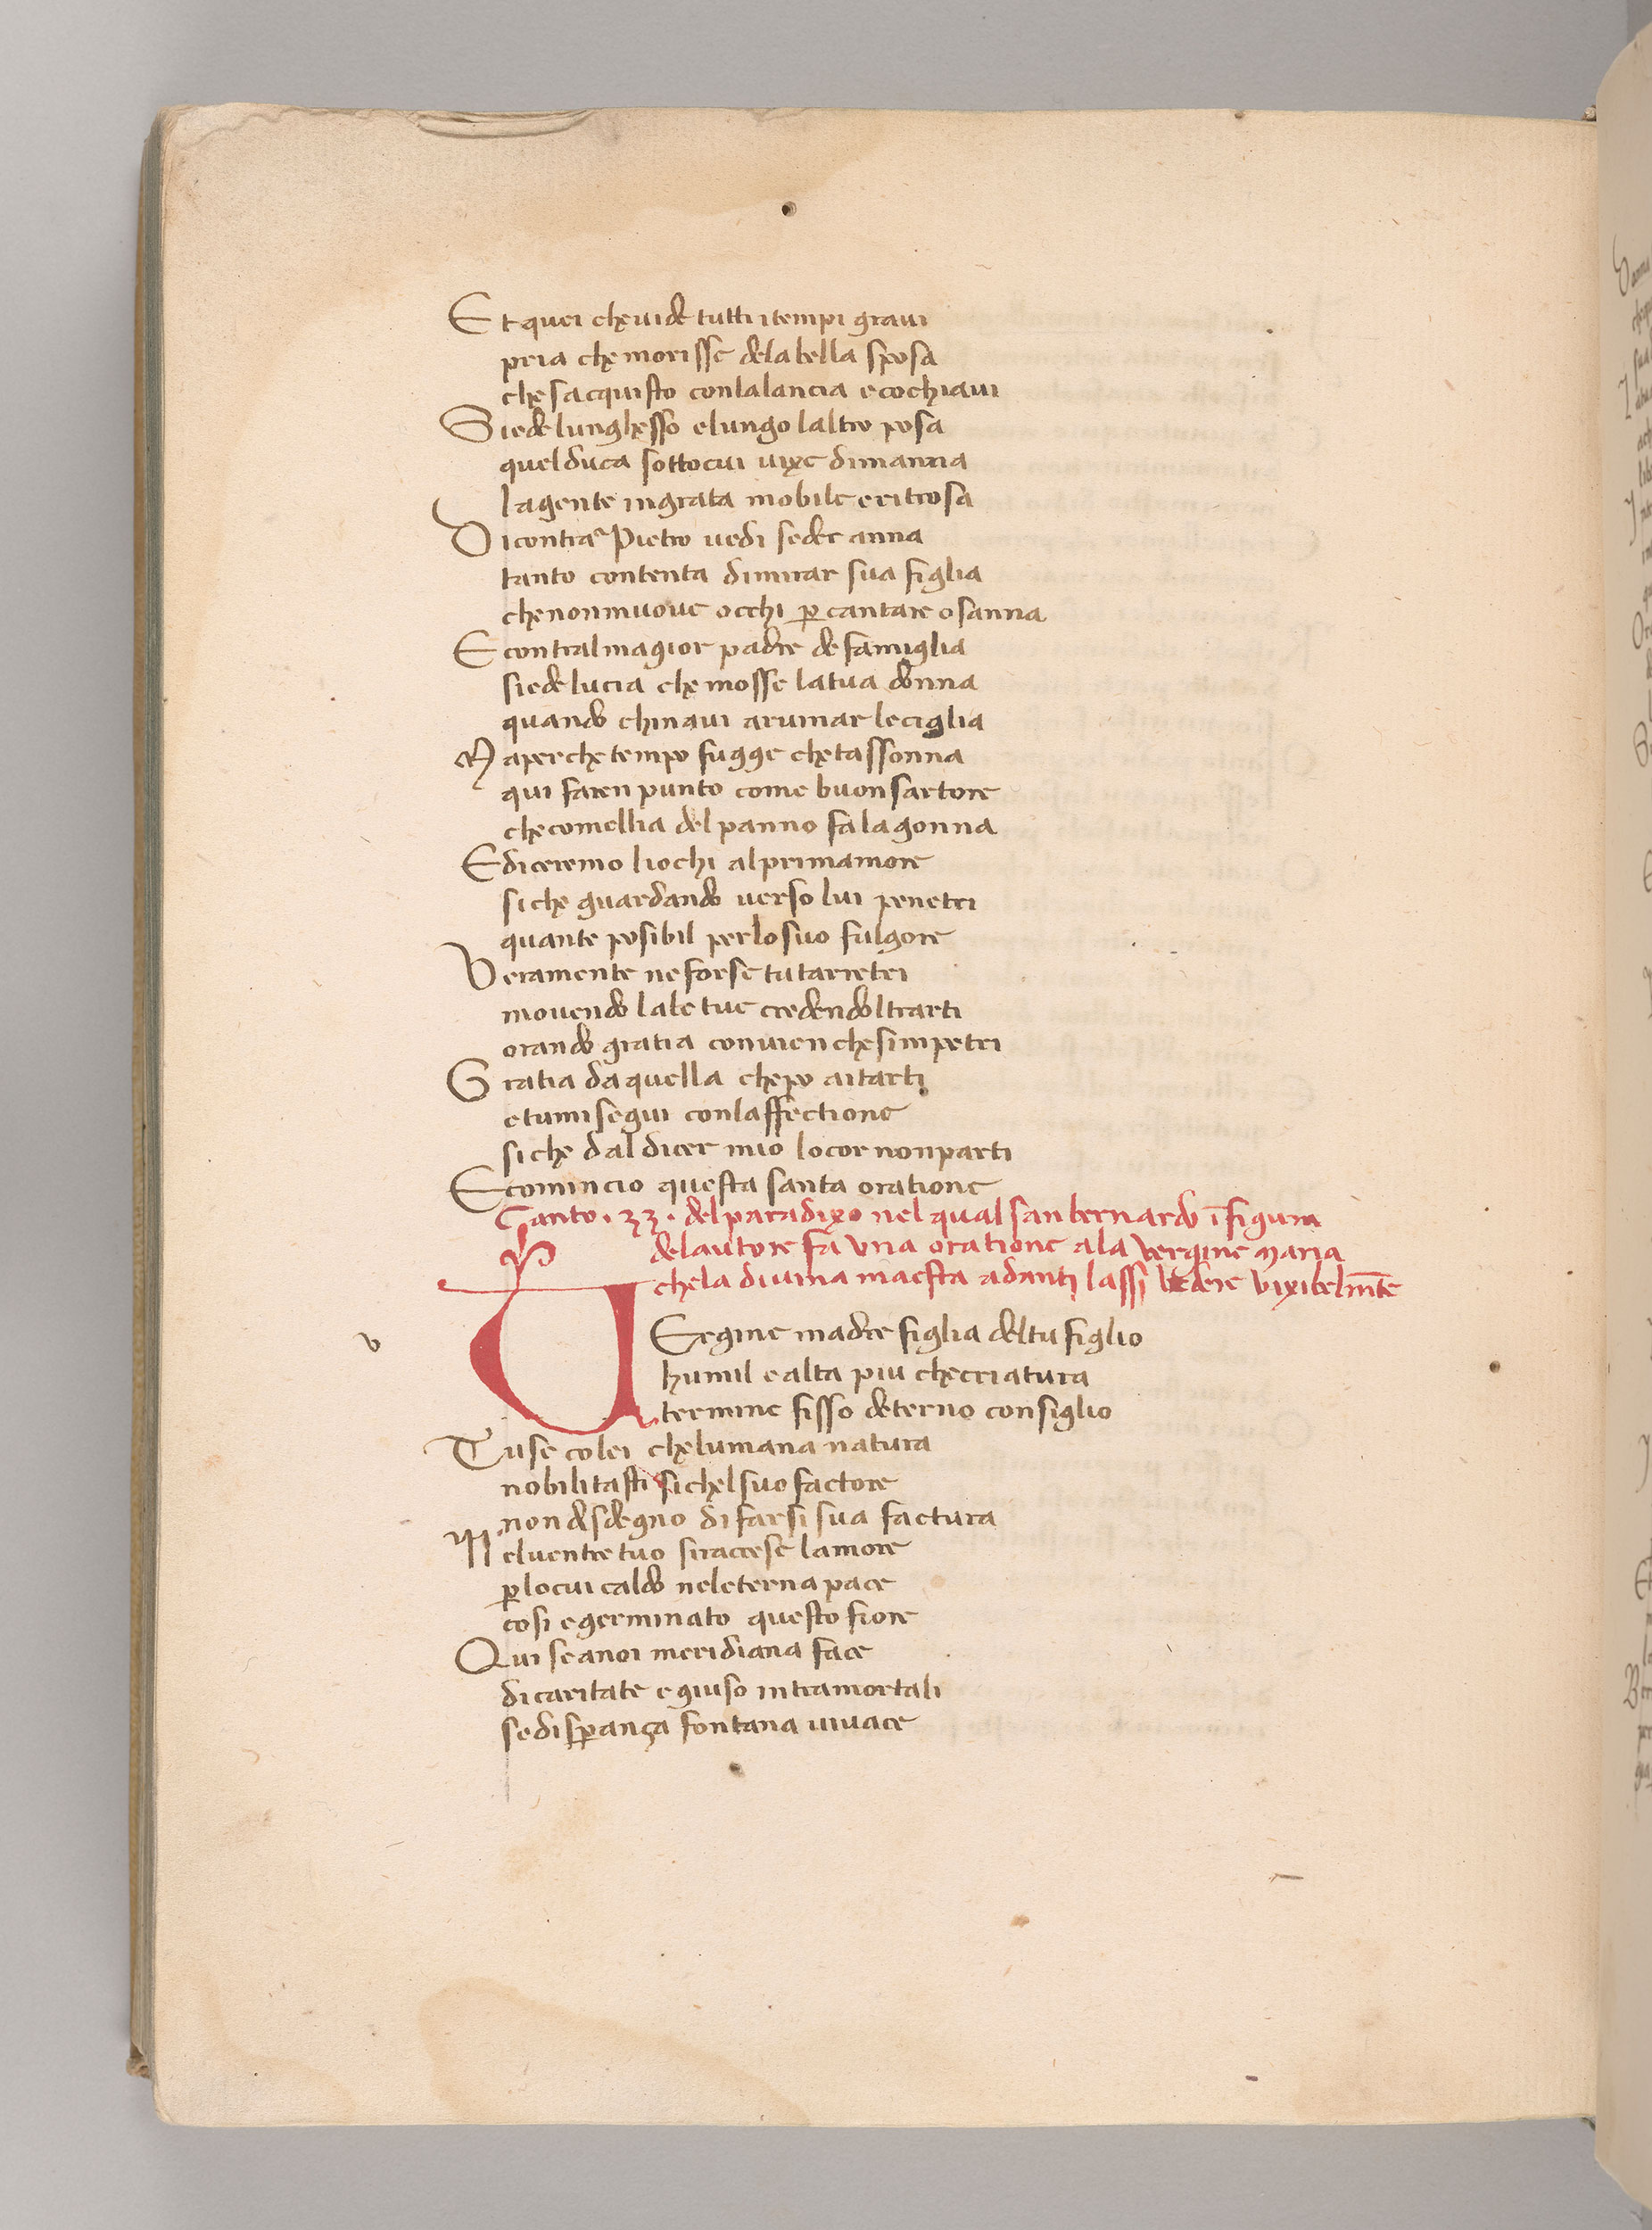 Et quei che uide tutti i tempi graui
pria che morisse dela bella sposa
che sacquisto conlalancia e cochiaui
Siede lunghesso elungo laltro posa
quel duca sottocui uixe dimanna
lagente ingrata mobile e ritrosa
Dicontra Pietro uedi seder anna
tanto contenta dimirar sua figlia
che nonmuoue occhi p cantare osanna
E contralmagior padre de famiglia
siede lucia che mosse latua donna
quando chinaui aruinar leciglia
Maperche tempo fugge che tassonna
qui faren punto come buon sartore
che comellia del panno fa lagonna
Ediceremo liochi alprimamore
siche guardando uerso lui penetri
quante posibil perlosuo fulgore
Veramente neforse tu tarretri
mouendo lale tue credendoltrarti
orando gratia conuien chesimpetri
Gratia daquella chepo aitarti
etumisegui conlaffectione
siche daldicer mio locor nonparti
Ecomincio questa santa oratione
Canto .33. delparadixo nel qual san bernardo ī figura
delautore fa vna oratione ala vergine maria
chela diuina maesta adanti lassi vedere vixibelmēte
v
VErgine madre figlia deltu figlio
humil e alta piu checriatura
termine fisso deterno consiglio
Tuse colei chelumana natura
nobilitasti sichelsuo factore
non desdegno di farsi sua factura
Neluentre tuo siraccese lamore
p locui caldo neleterna pace
cosi egerminato questo fiore
Qui seanoi meridiana face
dicaritate egiuso intramortali
sedisperança fontana uiuace